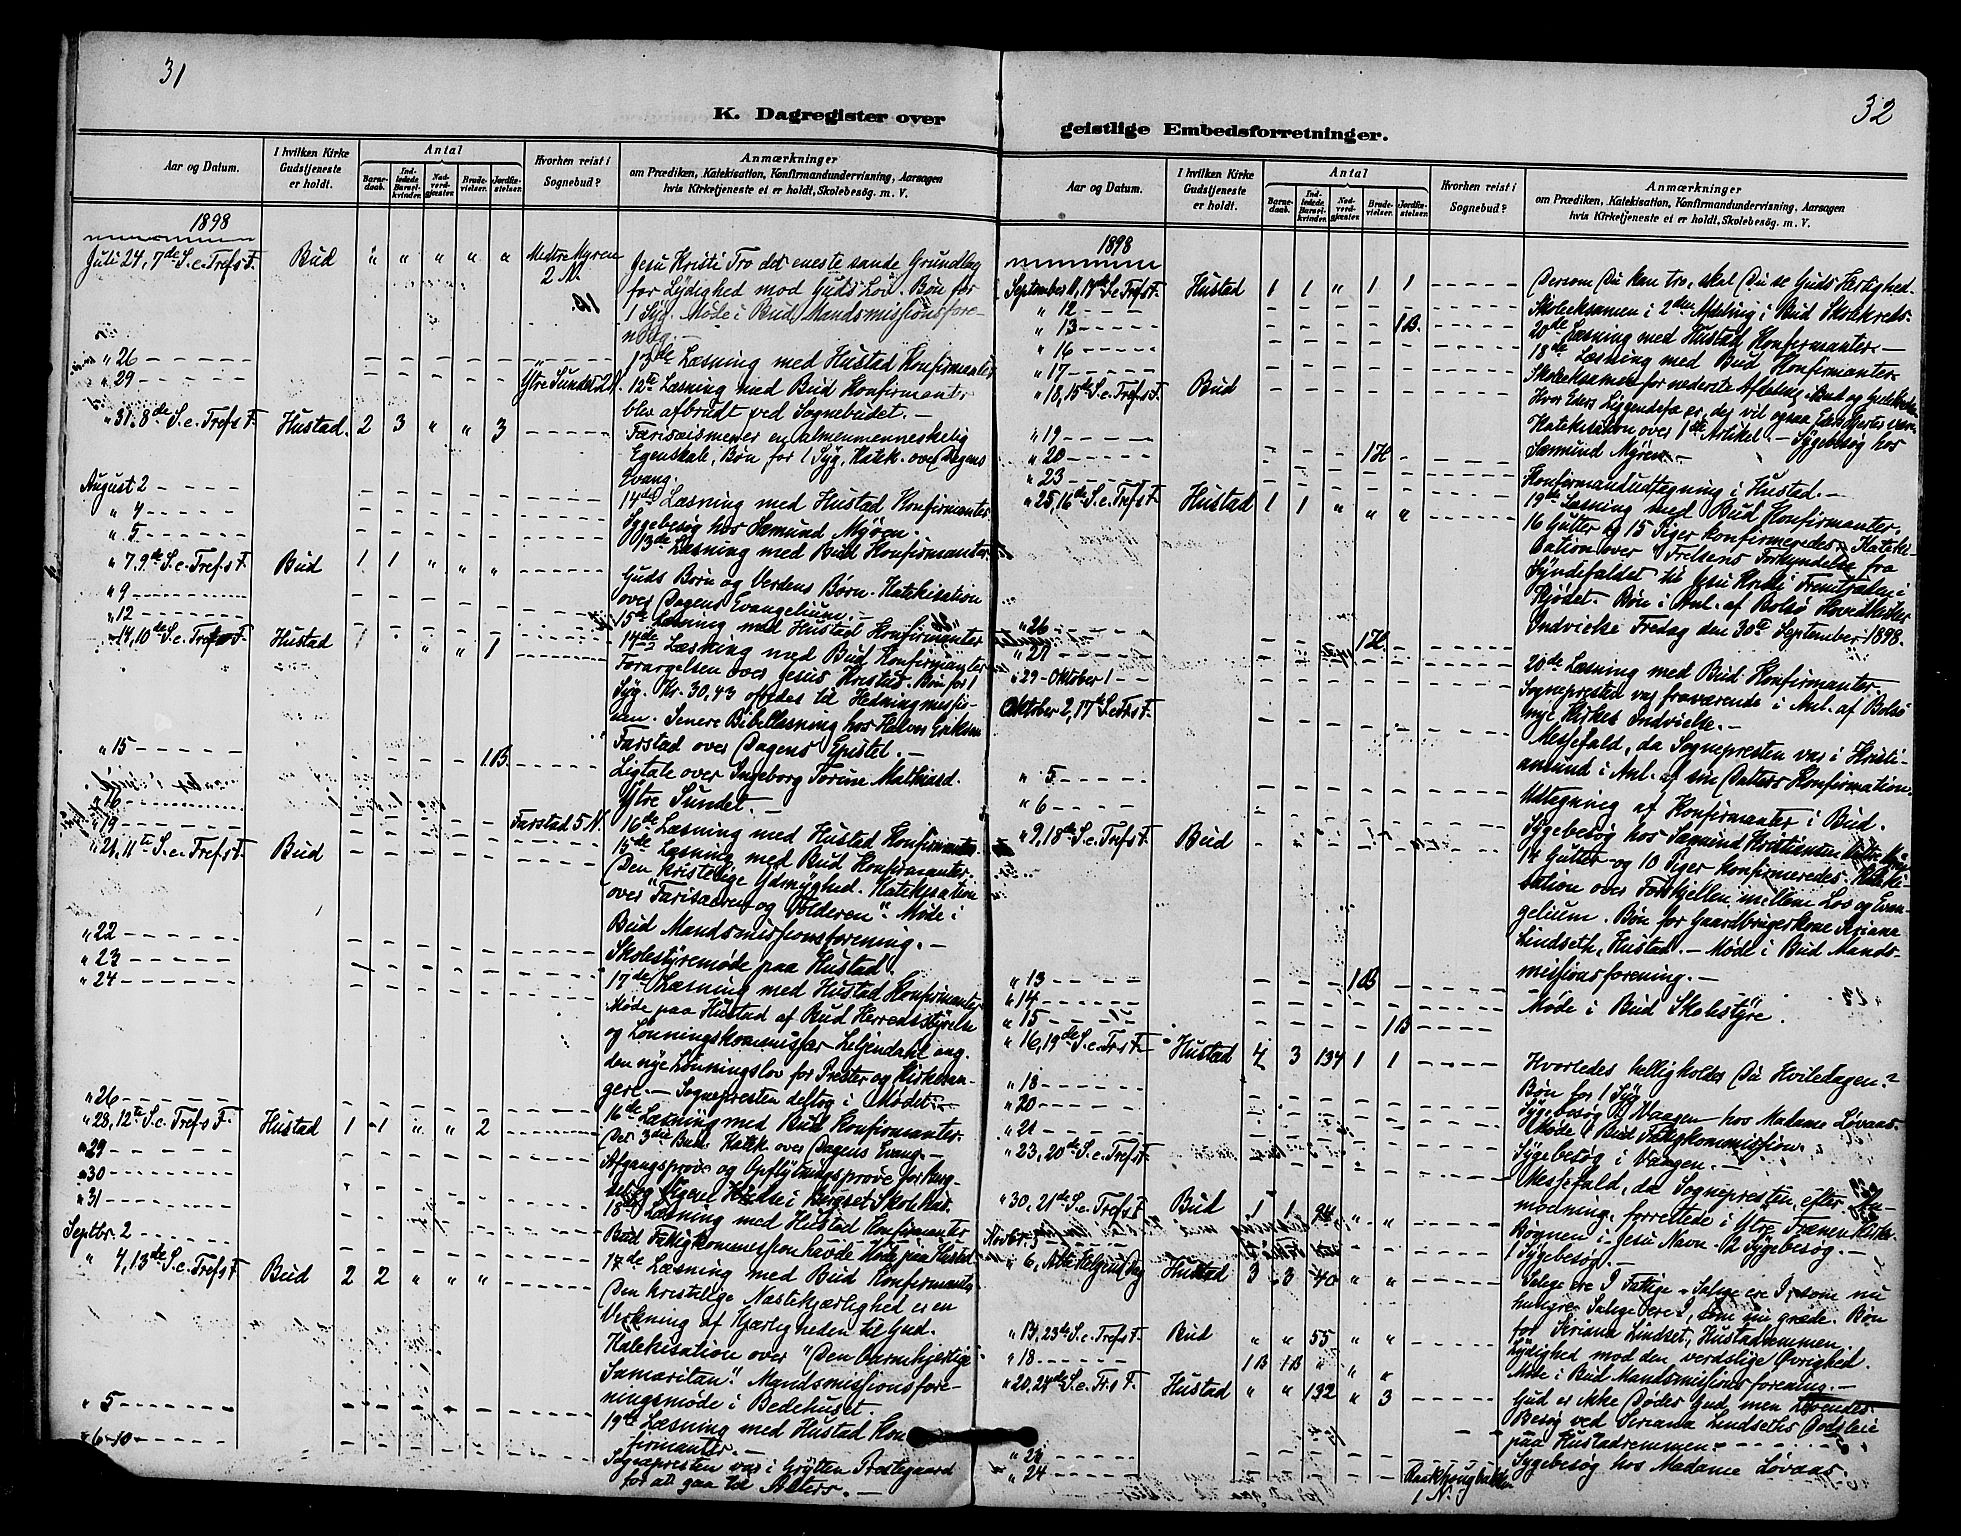 31
K. Dagregister over
Aar og Datum.
I hvilken Kirke Gudstjeneste er holdt.
Antal
Barnedaab.
Indledede Barselkvinder.
Nadverdgjæster.
Brudevielser.
Jordfæstelser.
Hvorhen reist i Sognebud?
Anmærkninger
om Prædiken, Katekisation, Konfirmandundervisning, Aarsagen
hvis Kirketjeneste ei er holdt, Skolebesøg. m. V.
1898
Juli 24, 7de S. e. Tref s F. Bud " " " " " Medtre Myren 2 N. Jesu Kristi Tro det eneste sande Grundlag
for Lydighed mod Guds Lov. Bøn for
1 Syg. Møde i Bud Mandsmissionsfore-
ning.
" 26 13de Læsning med Hustad Konfirmanter
" 29 Ytre Sundet 2 N. 12te Læsning med Bud Konfirmanter
blev afbrudt ved Sognebudet. —
" 31. 8de S. e. Tref s F. Hustad. 2 3 " " 3 Farisæismen er en almenmenneskelig
Egenskab, Bøn for 1 Syg, Katek. over Dagens
Evang.
August 2 14de Læsning med Hustad Konfirmanter
" 4 Sygebesøg hos Sæmund Myren
" 5 13de Læsning med Bud Konfirmanter
" 7, 9de S. e. Tref s F. Bud 1 1 " " " Guds Børn og Verdens Børn. Katekisation
over Dagens Evangelium. —
" 9 15de Læsning med Hustad Konfirmanter
" 12 14de Læsning med Bud Konfirmanter
" 14, 10de S. e. Tref s F. Hustad 1 " " 1 Forargelsen over Jesus Kristus. Bøn for 1
Syg. Kr. 30,43 ofredes til Hedningmissio-
nen. Senere Bibellæsning hos Halvor Eriksen
Farstad over Dagens Epistel. —
" 15 1 B. Ligtale over Ingeborg Torine Mathiasd.
Ytre Sundet. —
" 16 16de Læsning med Hustad Konfirmanter
" 19 Farstad 5 N. 15de Læsning med Bud Konfirmanter
" 21, 11te S. e. Tref s F. Bud Den kristelige Ydmyghed. Katekisation
over "Farisæeren og Tolderen". Møde i
Bud Mandsmissionsforening. —
" 22 Skolestyremøde paa Hustad.
" 23 17de Læsning med Hustad Konfirmanter
" 24 Møde paa Hustad af Bud Herredsstyrelse
og Lønningskommissær Liljendahl ang.
den nye Lønningslov for Prester og Kirkesan-
gere. — Sognepresten deltog i Mødet. —
" 26 16de Læsning med Bud Konfirmanter
" 28, 12te S. e. Tref s F. Hustad 1 1 " " 2 Det 3die Bud. Katek. over Dagens Evang. —
" 29 Afgangsprøve og Opflytningsprøve for Berg-
" 30 18de Læsning med Hustad Konfirmanter
" 31 Bud Fattigkommission havde Møde paa Hustad.
Septbr. 2 17de Læsning med Bud Konfirmanter
" 4, 13de S. e. Tref s F. Bud 2 2 " " " Den kristelige Næstekjærlighed er en
Virkning af Kjærligheden til Gud.
Katekisation over "Den barmhjertige
Samaritan". Mandsmissionsfore-
ningsmøde i Bedehuset.
" 5 19de Læsning med Hustad Kon
firmanter. —
" 6–10 Sognepresten var i Grytten Prestegaard
for at gaa til Alters. —
32
geistlige Embedsforretninger.
Aar og Datum.
I hvilken Kirke Gudstjeneste er holdt.
Antal
Barnedaab.
Indledede Barselkvinder.
Nadverdgjæster.
Brudevielser.
Jordfæstelser.
Hvorhen reist i Sognebud?
Anmærkninger
om Prædiken, Katekisation, Konfirmandundervisning, Aarsagen
hvis Kirketjeneste ei er holdt, Skolebesög. m. V.
1898
September 11, 14de S. e. Tref s F. Hustad 1 1 " 1 1 Dersom Du kan tro, skal Du se Guds Herlighed.
" 12 Skoleeksamen i 2den Afdeling i Bud Skolekreds.
" 13 1 B. 20de Læsning med Hustad Konfirmanter. —
" 16 18de Læsning med Bud Konfirmanter.
" 17 Skoleeksamen for nederste Afdeling
" 18, 15de S. e. Tref s F. Bud Hvor Eders Liggendefæ er, der vil ogsaa Eders Hjerte være.
Katekisation over 1ste Artikel. — Sygebesøg hos
" 19 Sæmund Myren. —
" 20 1 H
" 23 Konfirmandudtegning i Hustad. —
19de Læsning med Bud Konfirmanter.
" 25, 16de S. e. Tref s F. Hustad 1 1 " " " 16 Gutter og 15 Piger konfirmeredes. Kateki-
sation over "Frelsens Forkyndelse fra
Syndefaldet til Jesu Kristi Fremtræden i
Kjødet. Bøn i Anl. af Bolsø Hovedkirkes
Indvielse Fredag den 30te September 1898.
" 26
" 27 1 H. 20de Læsning med Bud Konfirmanter.
" 29 – Oktober 1 Sognepresten var fraværende i Anl. af Bolsø
nye Kirkes Indvielse. —
Oktober 2, 17de S. e. Tr. s F. Messefald, da Sognepresten var i Kristi-
ansund i Anl. af sin Datters Konfirmation.
" 5 Udtegning af Konfirmanter i Bud.
" 6 Sygebesøg hos Sæmund Kristiansen
" 9, 18de S. e. Tref s F. Bud 14 Gutter og 10 Piger konfirmeredes. Kateki-
sation over Forskjellen mellem Lov og Evan-
gelium. Bøn for Gaardbrugerkone Seriana
Lindseth, Hustad. — Møde i Bud Mands-
missionsforening. —
" 13 1 B
" 14 Møde i Bud Skolestyre.
" 15 1 B
" 16, 19de S. e. Tr. s F. Hustad 4 3 134 1 1 Hvorledes helligholdes Du Hviledagen?
Bøn for 1 Syg
" 18 Sygebesøg i Vaagen hos Madame Løvaas.
" 20 Møde i Bud Fattigkommission.
" 21 Sygebesøg i Vaagen. —
" 23, 20de S. e. Tref s F. Messefald, da Sognepresten efter An-
modning forrettede i Ytre Frænen Kirke.
" 30, 21de S. e. Tref s F. Bud 1 1 94 " " Bøgnen i Jesu Navn. 2 Sygebesøg. —
Novbr. 3 1 Sygebesøg. —
" 6, Alle Helgens Dag Hustad 3 3 40 " " Salige ere I Fattige. Salige ere I, som nu
hungre. Salige ere I, som nu græde. Bøn
for Seriana Lindset, Hustadremmen
" 13, 23de S. e. Tref s F. Bud " " 55 " " Lydighed mod den verdslige Øvrighed.
" 18 1 B 1 B " " " Møde i Bud Mandsmissionsforening. —
" 20, 24de S. e. Tr. s F. Hustad " " 132 " 3 Gud er ikke Dødes Gud, men Levendes.
Besøg ved Seriana Lindseths Dødsleie
paa Hustadremmen
" 23
" 24 1 N. Sygebesøg hos Madame Løvaas.